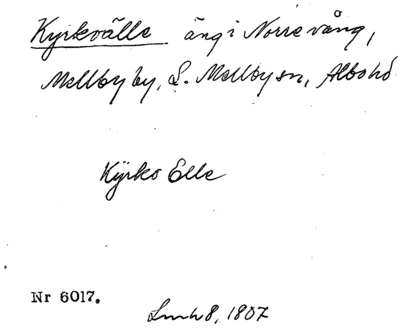 Kyrkvälle äng i Norrevång,
Mellby by, S. Mellby sn, Albo hd
Kyrko Elle
Nr 6017.
Lmh 8, 1807